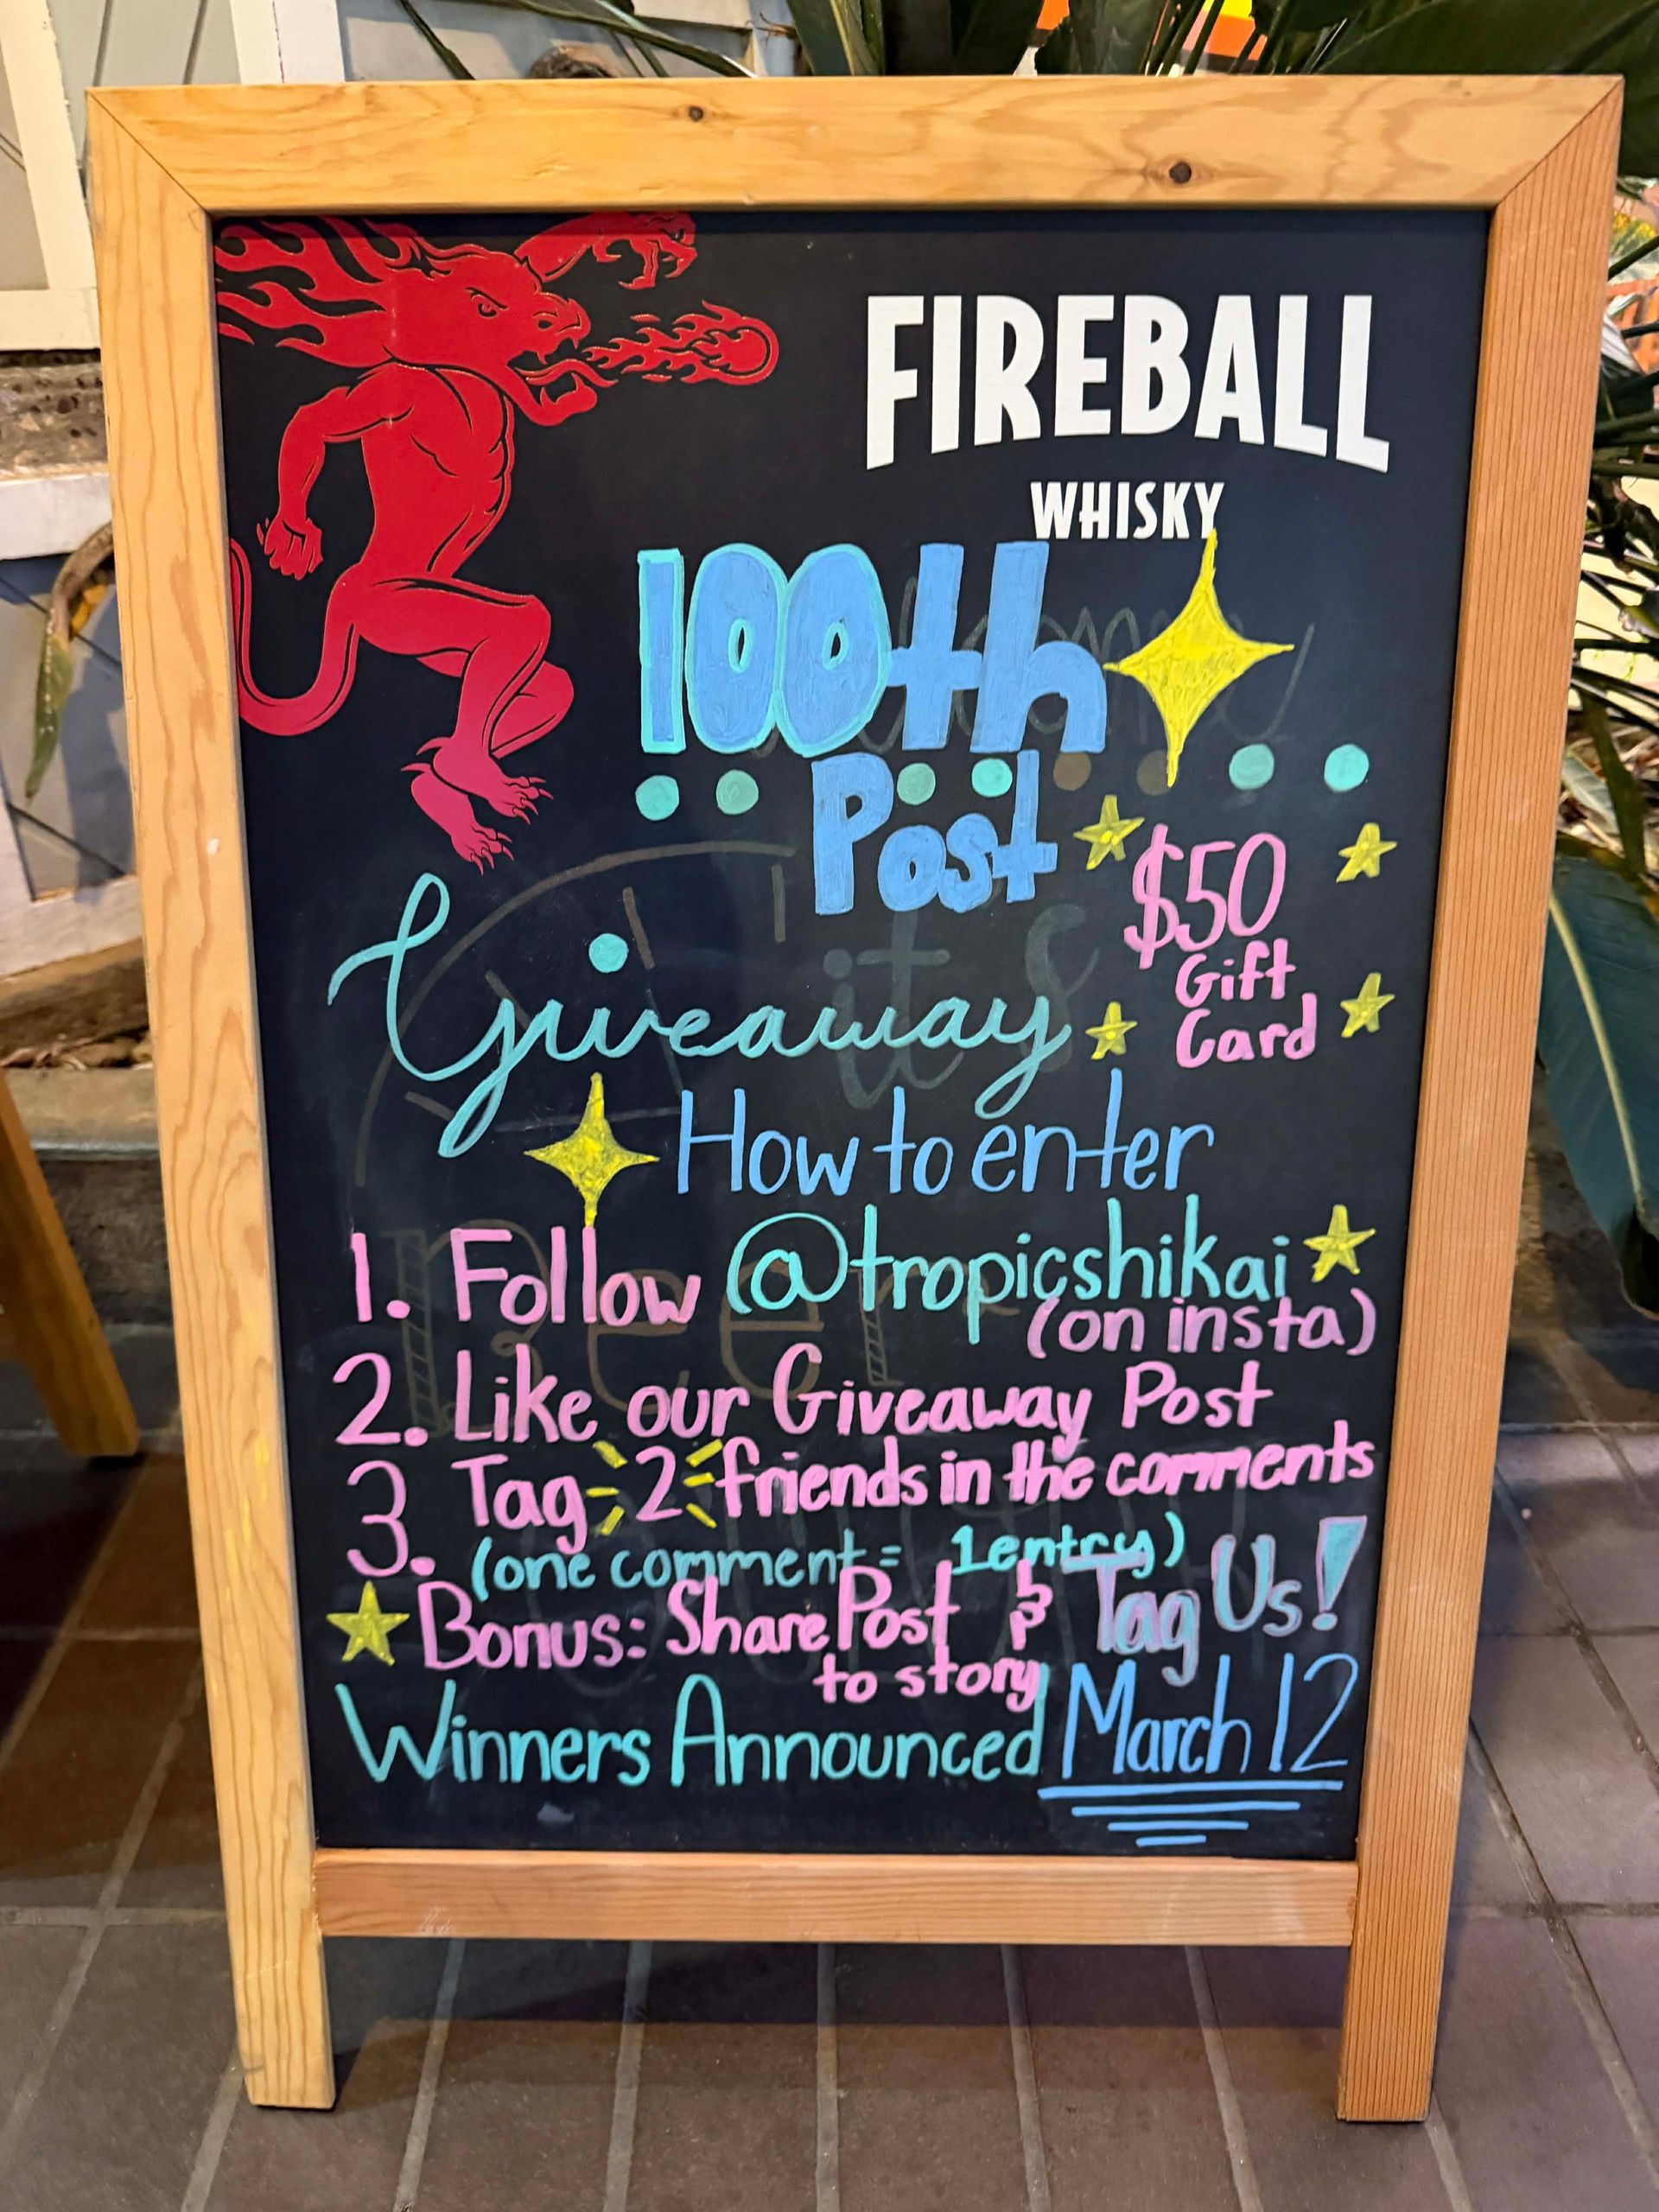 FIREBALL
WHISKY
100th
Post
$50
Gift
Card
Giveaway
How to enter
1. Follow @tropicshikai
(on insta)
2. Like our Giveaway Post
3. Tag 2 friends in the comments
(one comment = 1entry)
Bonus: Share Post & Tag Us!
to story
Winners Announced March 12